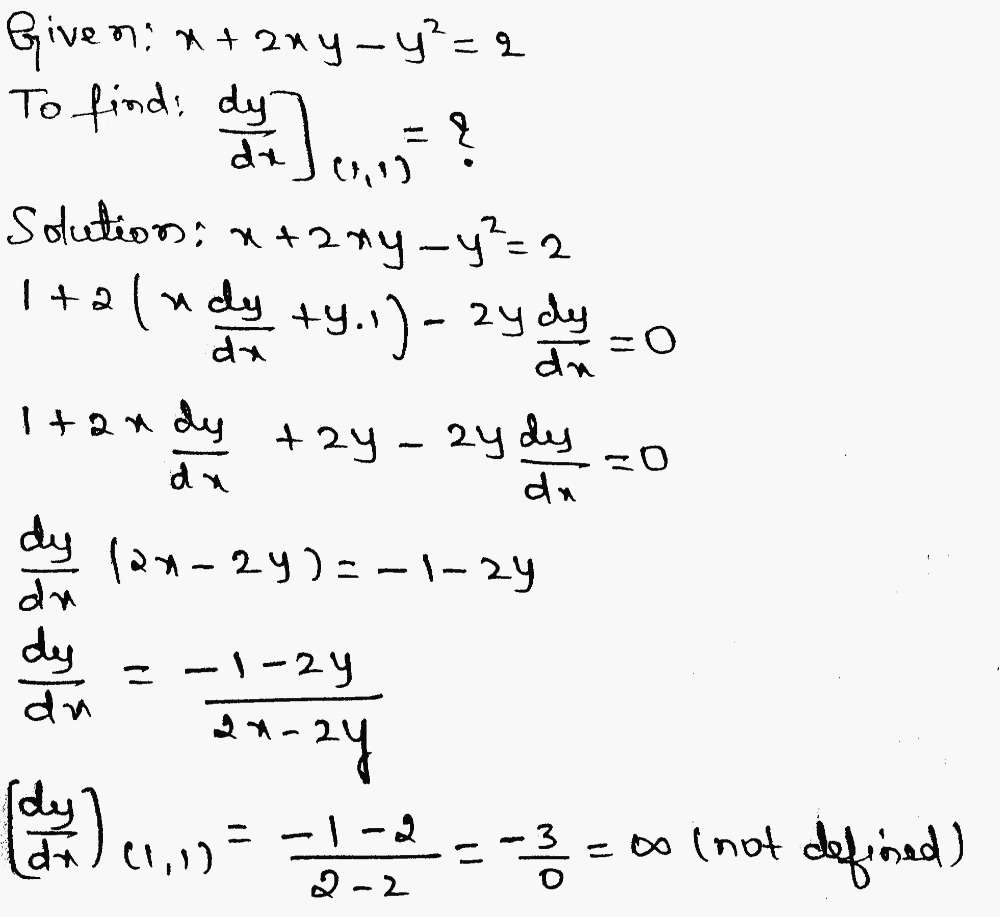 Given: x + 2xy - y² = 2
To find: dy/dx](1,1) = ?
Solution: x + 2xy - y² = 2
1 + 2(x dy/dx + y.1) - 2y dy/dx = 0
1 + 2x dy/dx + 2y - 2y dy/dx = 0
dy/dx (2x - 2y) = -1 - 2y
dy/dx = -1 - 2y / 2x - 2y
[dy/dx)(1,1) = -1 - 2 / 2 - 2 = -3/0 = ∞ (not defined)